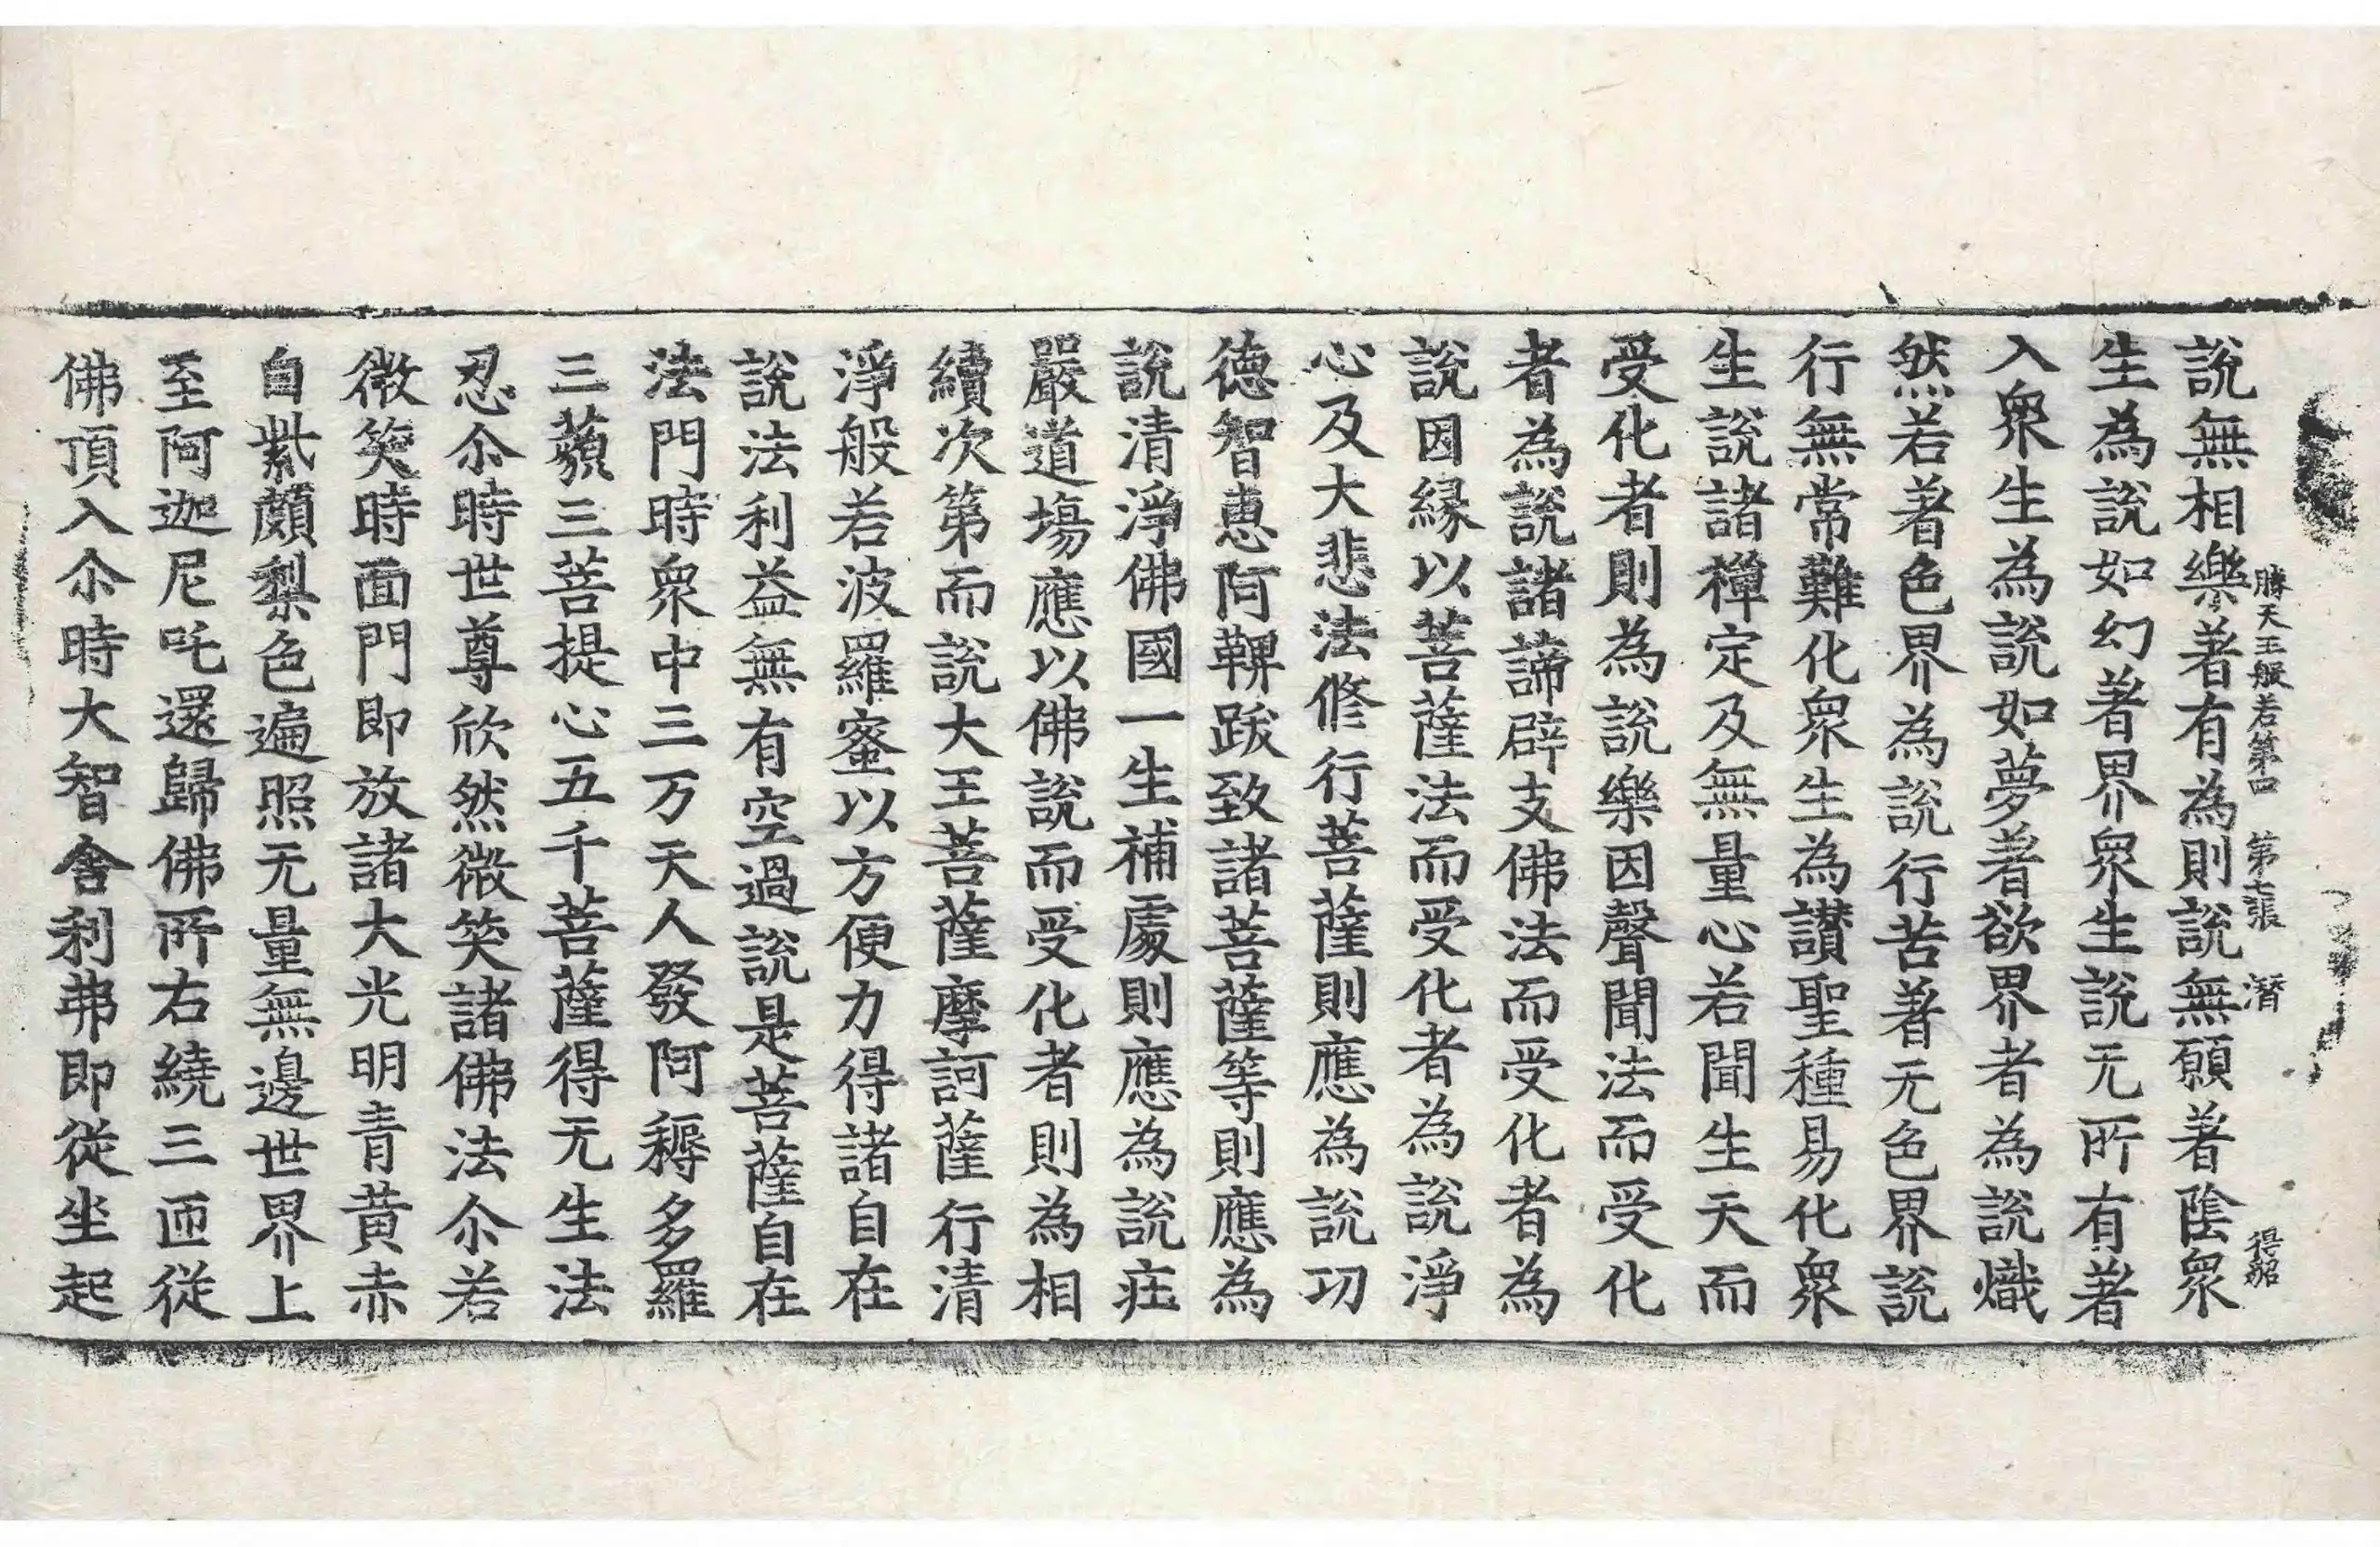 勝天王般若第四 第七張 潛 得韶
說無相樂著有為則說無願著陰衆
生為說如幻著界衆生說无所有著
入衆生為說如夢著欲界者為說熾
然若著色界為說行苦著无色界說
行無常難化衆生為讃聖種易化衆
生說諸禪定及無量心若聞生天而
受化者則為說樂因聲聞法而受化
者為說諸諦辟支佛法而受化者為
說因緣以菩薩法而受化者為說淨
心及大悲法修行菩薩則應為說功
德智惠阿鞞跋致諸菩薩等則應為
說清淨佛國一生補處則應為說疘
嚴道場應以佛說而受化者則為相
續次第而說大王菩薩摩訶薩行清
淨般若波羅蜜以方便力得諸自在
說法利益無有空過說是菩薩自在
法門時衆中三万天人發阿耨多羅
三藐三菩提心五千菩薩得无生法
忍尒時世尊欣然微笑諸佛法尒若
微笑時面門即放諸大光明青黃赤
白紫頗梨色遍照无量無邊世界上
至阿迦尼吒還歸佛所右繞三匝從
佛頂入尒時大智舍利弗即從坐起